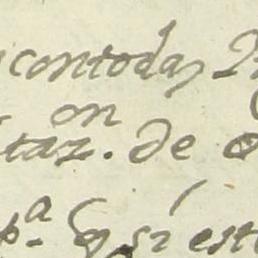 contodas
on
taz. de
pa. q si est